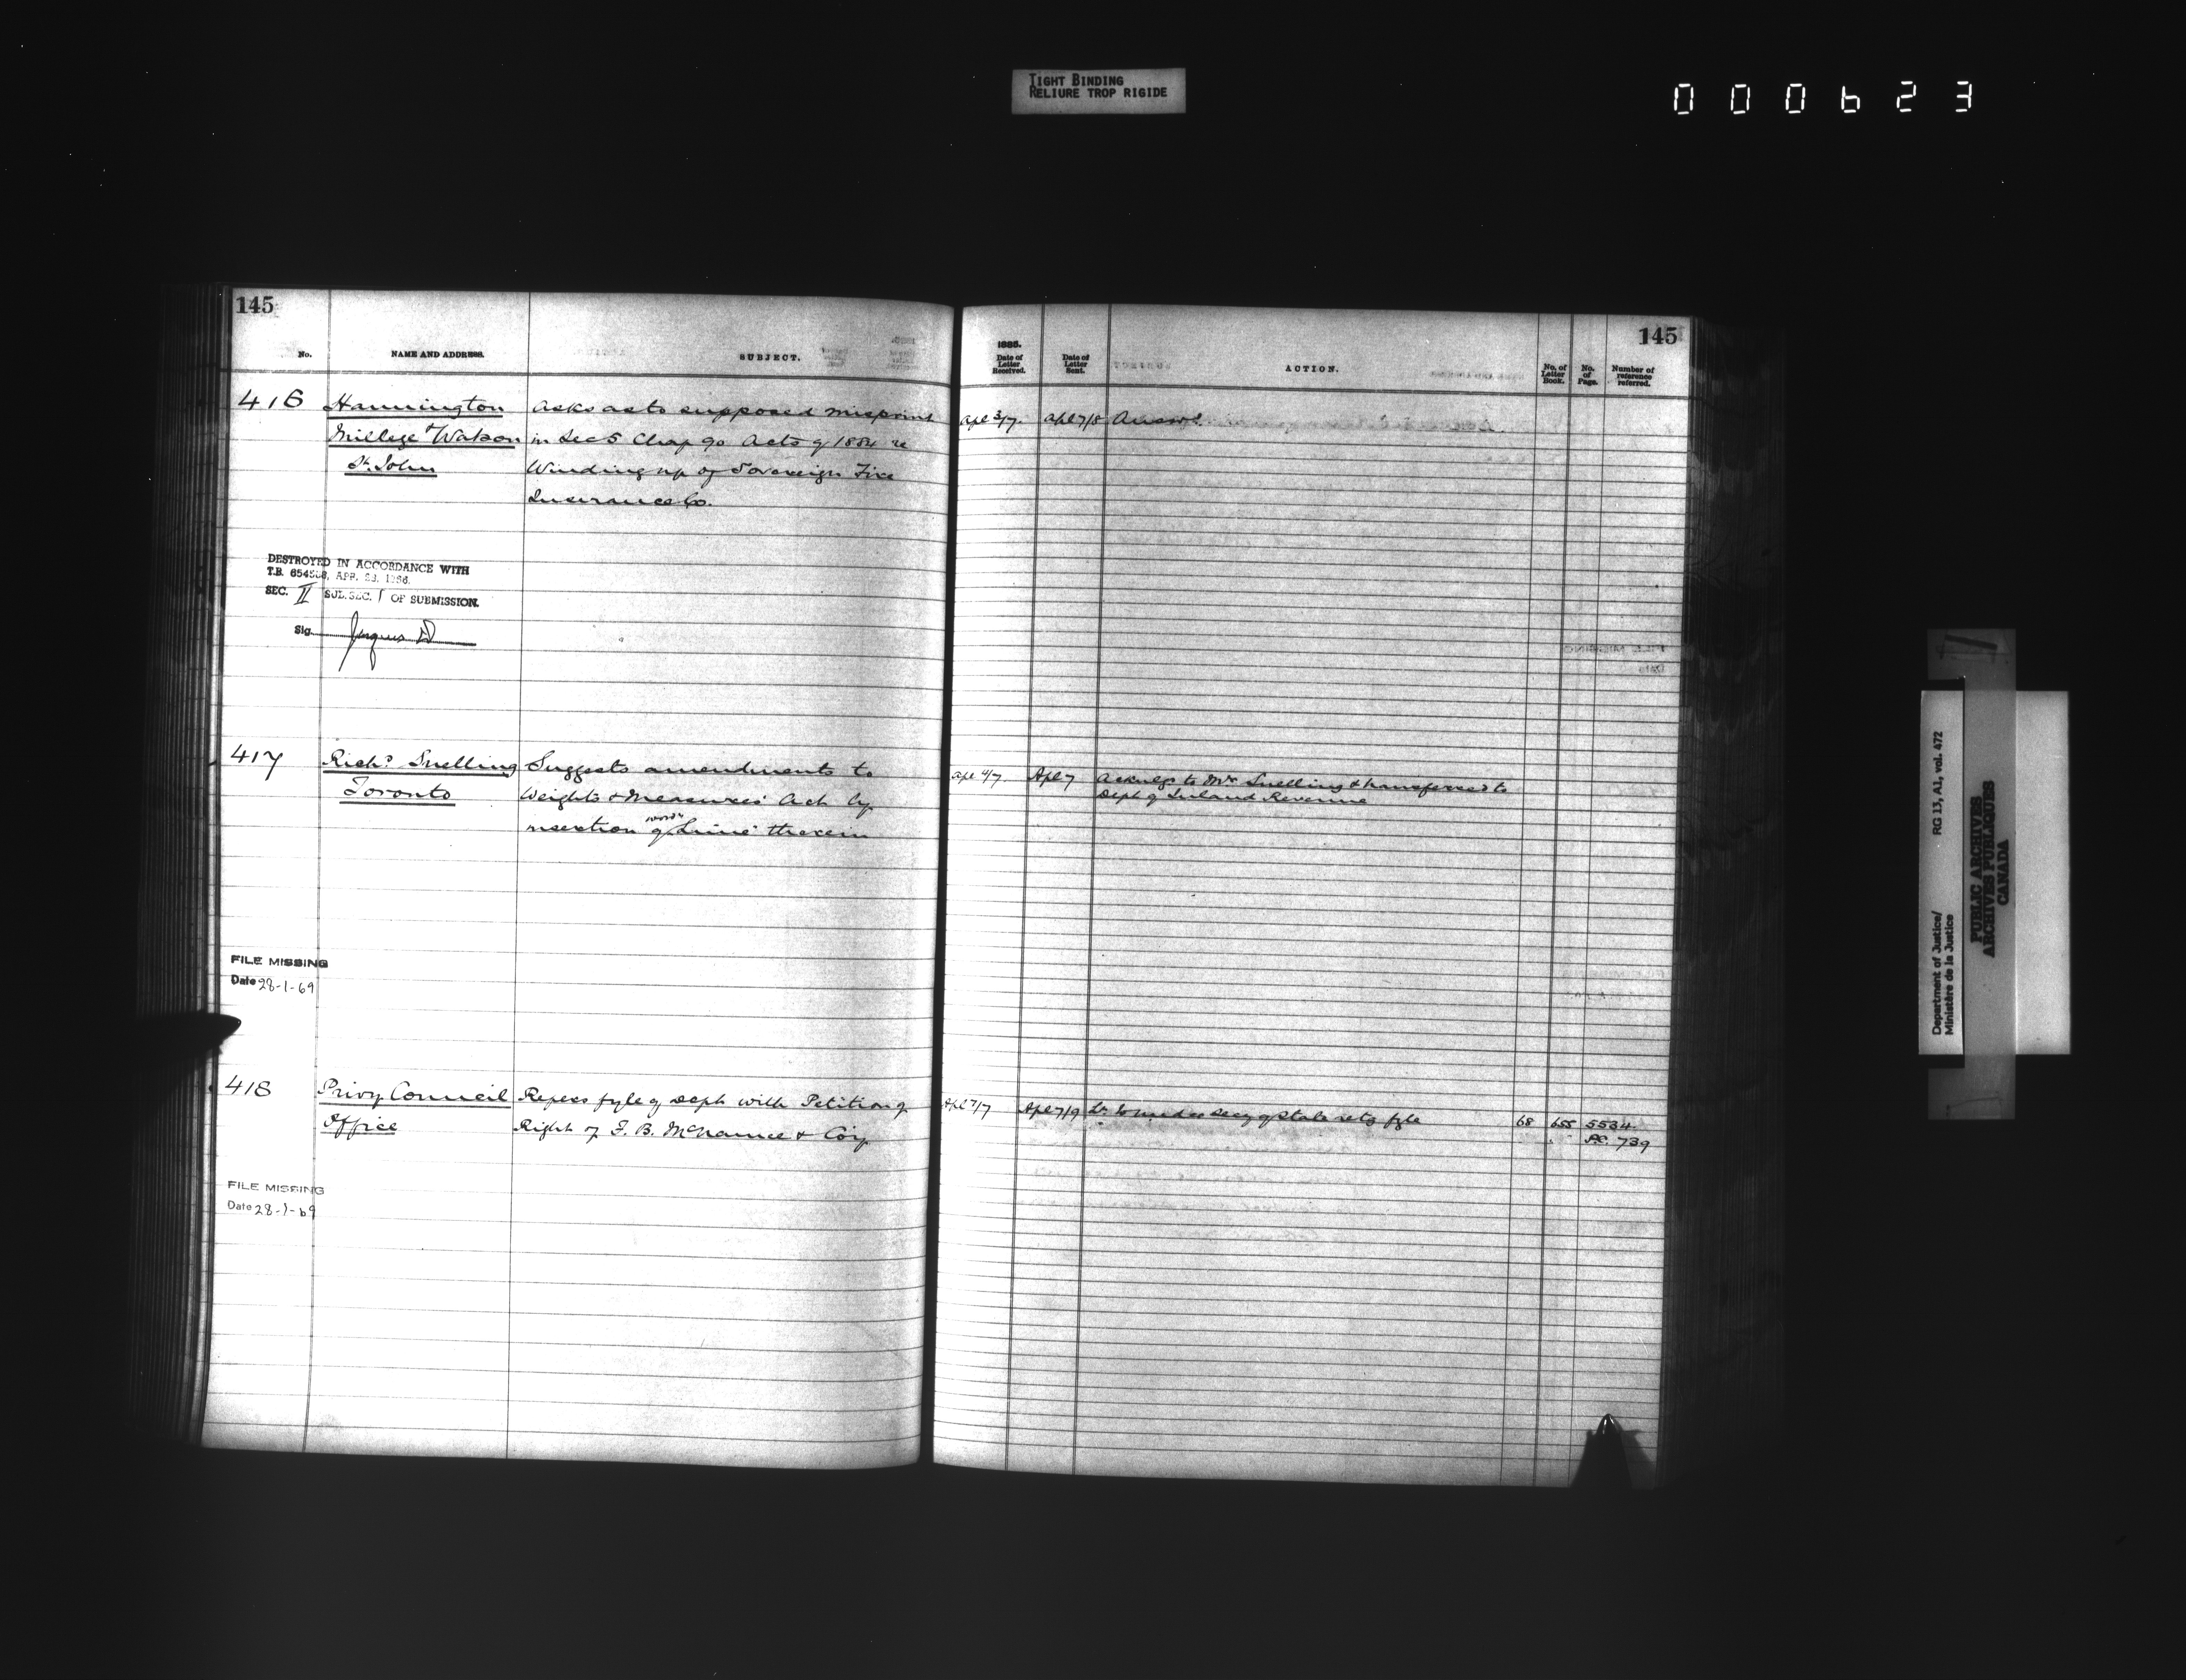 TIGHT BINDING
RELIURE TROP RIGIDE
000623
145
No. NAME AND ADDRESS. SUBJECT.
416 Hannington Asks as to supposed misprint
Millege & Watson in Sec 5 Chap 90 Acts of 1884 re
St. John Winding up of Sovereign Fire
Insurance Co.
DESTROYED IN ACCORDANCE WITH
T.B. 6545, APR. 1966.
SEC. II SUB. SEC. 1 OF SUBMISSION.
Sig.
417 Richd Snelling Suggests amendments to
Toronto Weights & Measures Act by
insertion of word "Lime" therein
FILE MISSING
Date 28-1-69
418 Privy Council Refers fyle of Dept with Petition of
Office Right of F. B. McNamee & Coy
FILE MISSING
Date 28-1-69
145
1885.
Date of Letter Received. Date of Letter Sent. ACTION. No. of Letter Book. No. of Page. Number of reference referred.
Apl 3/7 Apl 7/8 Answd.
Apl 4/7 Apl 7 Acknlgs to Mr Snelling & transferred to
Dept of Inland Revenue
Apl 7/7 Apl 7/9 Lr to Under Secy of State retg fyle 68 655 5534
P.C. 739
Department of Justice/ RG 13, A1, vol. 472
Ministère de la Justice
PUBLIC ARCHIVES
ARCHIVES PUBLIQUES
CANADA